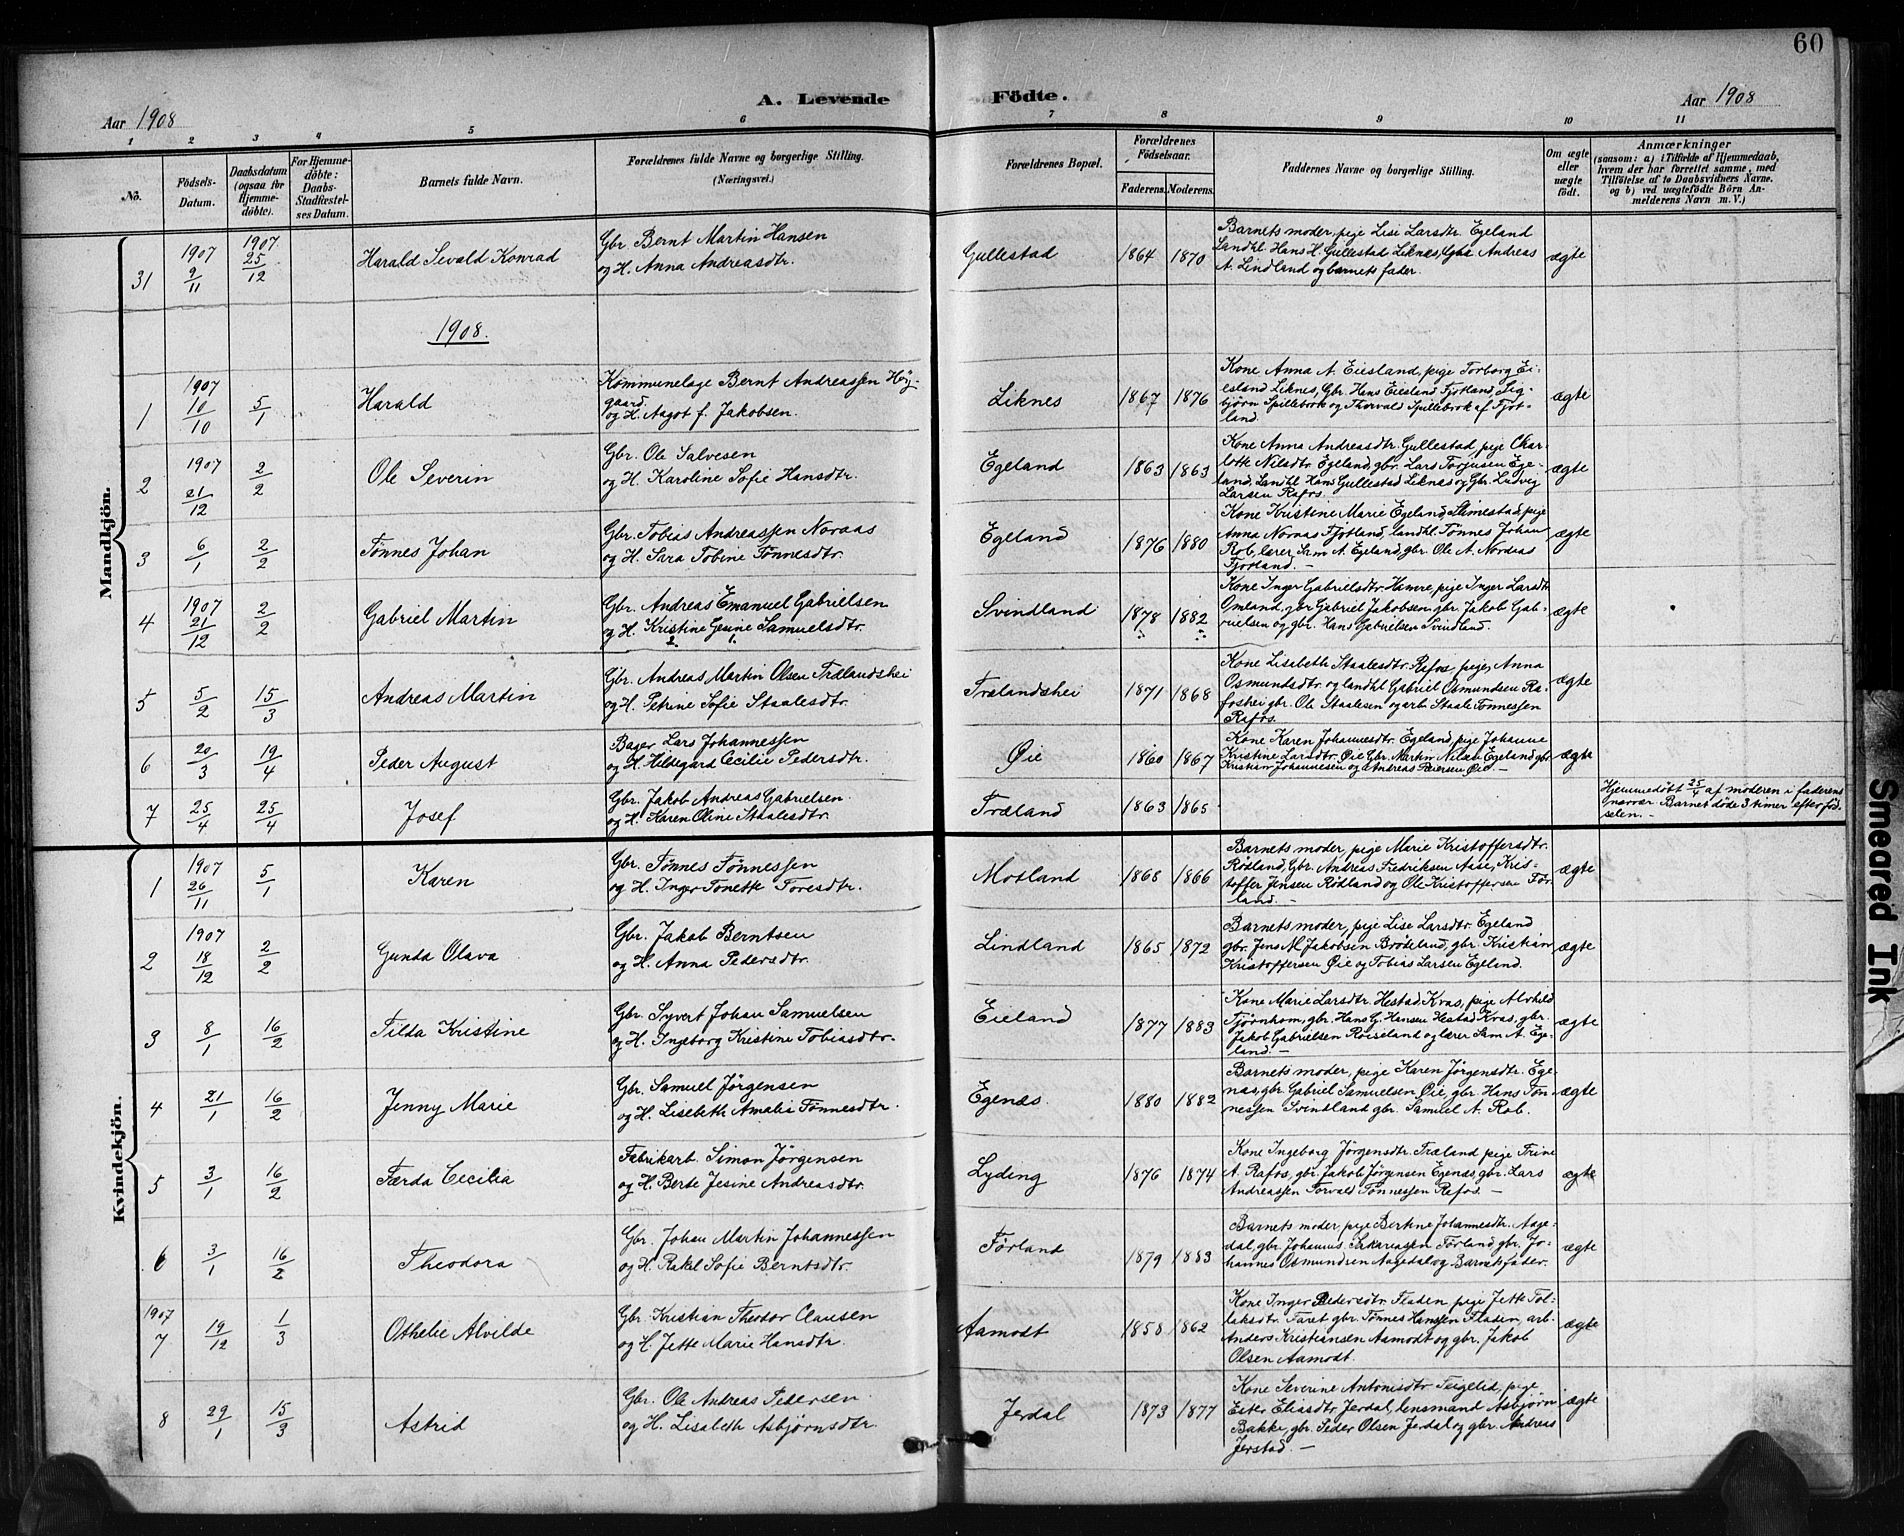 60
A. Levende Födte.
Aar 1908
Aar 1908
1 2 3 4 5 6 7 8 9 10 11
No.
Födsels-Datum.
Daabsdatum (ogsaa for Hjemmedöbte).
For Hjemmedöbte: Daabs-Stadfæstelses Datum.
Barnets fulde Navn.
Forældrenes fulde Navne og borgerlige Stilling.
(Næringsvei.)
Forældrenes Bopæl.
Forældrenes Födselsaar.
Faderens. Moderens.
Faddernes Navne og borgerlige Stilling.
Om ægte eller uægte födt.
Anmærkninger
(saasom: a) i Tilfælde af Hjemmedaab, hvem der har forrettet samme, med Tilföielse af to Daabsvidners Navne, og b) ved uægtefödte Börn Anmelderens Navn m. V.)
Mandkjön.
31 1907 9/11 1907 25/12 Harald Sevald Konrad
Gbr. Bernt Martin Hansen
og H. Anna Andreasdtr.
Gullestad 1864 1870
Barnets moder, pige Lise Larsdtr. Egeland
Landhl. Hans H. Gullestad Liknes, Gbr. Andreas
A. Lindland og barnets fader.
ægte
1908.
1 1907 10/10 5/1 Harald
Kommunelæge Bernt Andreassen Høygaard
og H. Aagot f. Jakobsen.
Liknes 1867 1876
Kone Anna A. Eiesland, pige Torborg Ei-
esland Liknes, Gbr. Hans Eiesland Fjotland, Sig-
björn Spillebrok og Thorvald Spillebrok af Fjot-
land.
ægte
2 1907 21/12 2/2 Ole Severin
Gbr. Ole Salvesen
og H. Karoline Sofie Hansdtr.
Egeland 1863 1863
Kone Anna Andreasdtr. Gullestad, pige Char-
lotte Nilsdtr. Egeland, gbr. Lars Torjusen Ege-
land, Landhl. Hans Gullestad Liknes og Gbr. Ludvig
Larsen Rafos.
ægte
3 6/1 2/2 Tønnes Johan
Gbr. Tobias Andreassen Noraas
og H. Sara Tobine Tønnesdtr.
Egeland 1876 1880
Kone Kristine Marie Egeland, pige
Anna Noraas Fjotland, landhl. Tønnes Johan
Rob, lærer Sam A. Egeland, gbr. Ole A. Nordaas
Fjotland. —
ægte
4 1907 21/12 2/2 Gabriel Martin
Gbr. Andreas Emanuel Gabrielsen
og H. Kristine Gesine Samuelsdtr.
2 1.
Svindland 1878 1882
Kone Inger Gabrielsdtr. Hamre, pige Inger Larsdtr.
Omland, gbr. Gabriel Jakobsen, gbr. Jakob Gab-
rielsen og gbr. Hans Gabrielsen Svindland.
ægte
5 5/2 15/3 Andreas Martin
Gbr. Andreas Martin Olsen Trælandshei
og H. Petrine Sofie Staalesdtr.
Trælandshei 1871 1868
Kone Lisabeth Staalesdtr. Rafos, pige, Anna
Osmundsdtr. og landhl Gabriel Osmundsen Ra-
foshei gbr. Ole Staalesen og arb. Staale Tønnessen
Rafos.
ægte
6 20/3 19/4 Peder August
Bager Lars Johannessen
og H. Hildegard Cecilie Pedersdtr.
Øie 1860 1867
Kone Karen Johannesdtr. Egeland, pige Johanne
Kristine Larsdtr. Øie Gbr. Martin Nilsen Egeland gbr.
Kristian Johannesen og Andreas Pedersen Øie. —
ægte
7 25/4 25/4 Josef
Gbr. Jakob Andreas Gabrielsen.
og H. Karen Oline Staalesdtr.
Træland 1863 1865
Hjemmedöbt 25/4 af moderen i faderens
nærvær. Barnet døde 3 timer efter föd-
selen. —
Kvindekjön.
1 1907 26/11 5/1 Karen
Gbr. Tønnes Tønnessen
og H. Inger Tonette Toresdtr.
Mosland 1868 1866
Barnets moder, pige Marie Kristoffersdtr.
Rødland, Gbr. Andreas Fredriksen Aase, Kris-
toffer Jensen Rødland og Ole Kristoffersen Før-
land. —
ægte
2 1907 18/12 2/2 Gunda Olava
Gbr. Jakob Berntsen
og H. Anna Pedersdtr.
Lindland 1865 1872
Barnets moder, pige Lise Larsdtr. Egeland
gbr. Jens M. Jakobsen Brödeland, gbr. Kristian
Kristoffersen Øie og Tobias Larsen Egeland.
ægte
3 8/1 16/2 Tilda Kristine
Gbr. Syvert Johan Samuelsen
og H. Ingeborg Kristine Tobiasdtr.
Eieland 1877 1883
Kone Marie Larsdtr. Hestad Kvas, pige Alvhild
Tjørnhom, gbr. Hans G. Hansen Hestad Kvas, gbr.
Jakob Gabrielsen Røiseland og lærer Sam A. Ege-
land. —
ægte
4 21/1 16/2 Jenny Marie
Gbr. Samuel Jørgensen
og H. Lisebeth Amalie Tønnesdtr.
Egenæs. 1880 1882
Barnets moder, pige Karen Jørgensdtr. Ege-
næs, gbr. Gabriel Samuelsen Øie, gbr. Hans Tøn-
nessen Svindland gbr. Samuel A. Rob.
ægte
5 3/1 16/2 Færda Cecilia
Fabrikarb. Simon Jørgensen
og H. Berte Jesine Andreasdtr.
Lyding 1876 1874
Kone Ingeborg Jørgensdtr. Træland pige Trine
A. Rafos, gbr. Jakob Jørgensen Egenæs, gbr. Lars
Andreassen Torvald Tønnessen Rafos. —
ægte
6 3/1 16/2 Theodora
Gbr. Johan Martin Johannessen
og H. Rakel Sofie Berntsdtr.
Førland 1879 1883
Barnets moder, pige Bertine Johannesdtr. Aage-
dal, gbr. Johannes Sakariassen Førland, gbr. Jo-
hannes Osmundsen Aagedal og Barnets fader.
ægte
1907
7 19/12 1/3 Othelie Alvilde
Gbr. Kristian Theodor Clausen
og H. Jette Marie Hansdtr.
Aamodt 1858 1862
Kone Inger Pedersdtr. Fladen, pige Jette Tol-
laksdtr. Faret gbr. Tønnes Hanssen Fladen, arb.
Anders Kristiansen Aamodt og gbr. Jakob
Olsen Aamodt.
ægte
8 29/1 15/3 Astrid
Gbr. Ole Andreas Pedersen
og H. Lisabeth Asbjørnsdtr.
Jerdal 1873 1877
Kone Severine Antonisdtr. Teigelid, pige
Ester Eliasdtr. Jerdal, lensmand Asbjørn
Bakke, gbr. Peder Olsen Jerdal og gbr. Andreas
Jerstad. —
ægte
Smeared Ink